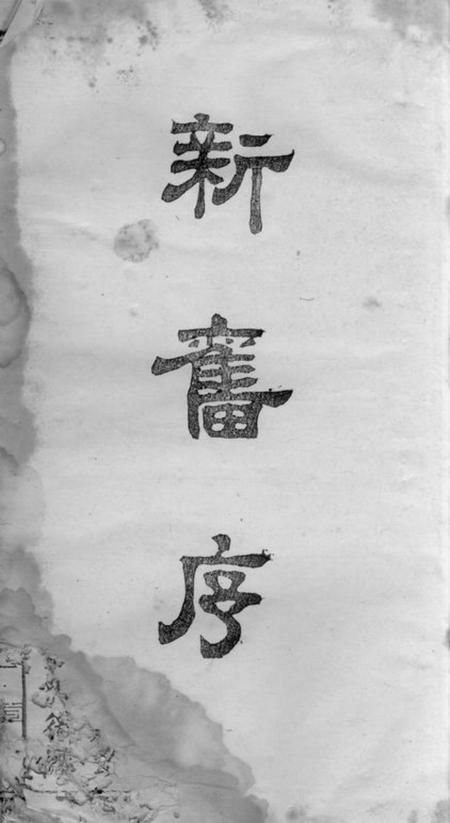 新
舊
序